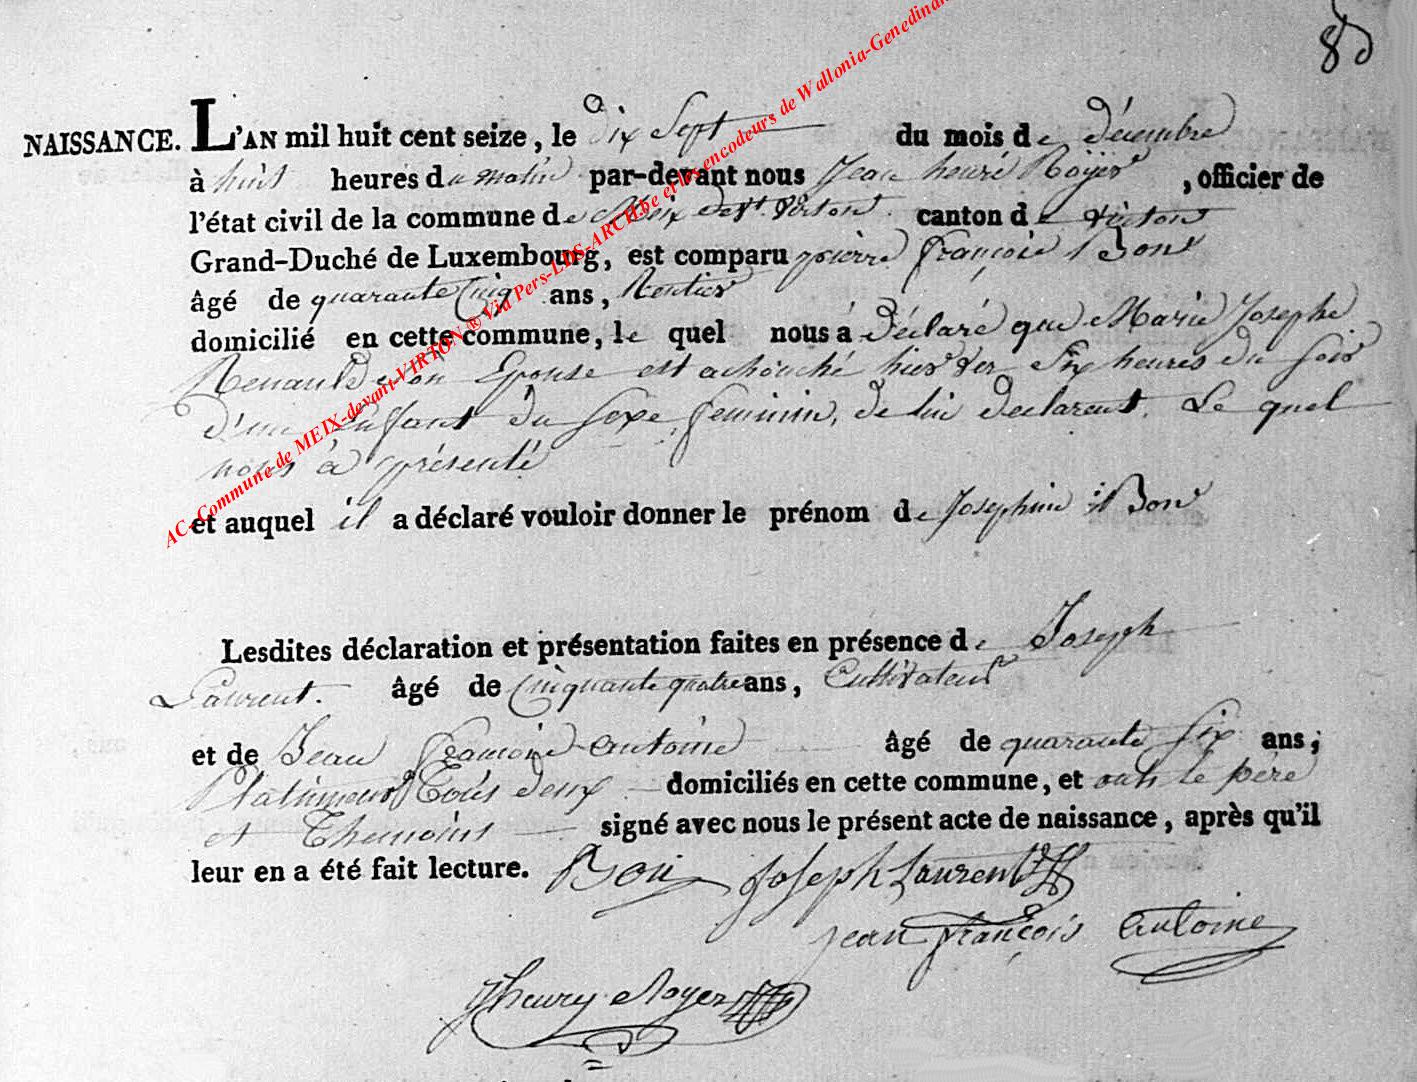 85
NAISSANCE. L'AN mil huit cent seize, le dix Sept du mois de décembre
à huit heures du matin par-devant nous Jean henri Royer, officier de
l'état civil de la commune de Meix devt. Virton canton de virton
Grand-Duché de Luxembourg, est comparu pierre françois Bon
âgé de quarante Cinq ans, Rentier
domicilié en cette commune, le quel nous à déclaré que Marie Josephe
Renauld son Epouse est achouché hier ver Six heures du soir
d'un Enfant du sexe feminin, de lui declarent. Le quel
nous à présenté
et auquel il a déclaré vouloir donner le prénom de Josephine Bon
Lesdites déclaration et présentation faites en présence de Joseph
Laurent. âgé de Cinquante quatre ans, Cultivateur
et de Jean françois antoine âgé de quarante six ans;
Tous deux domiciliés en cette commune, et onts le père
et Themoins signé avec nous le présent acte de naissance, après qu'il
leur en a été fait lecture. Bon Joseph Laurent
jean françois antoine
Jhenry Royer
AC-Commune de MEIX-devant-VIRTON ® Via Pers-LDS-ARCH.be et les encodeurs de Wallonia-Genedinan